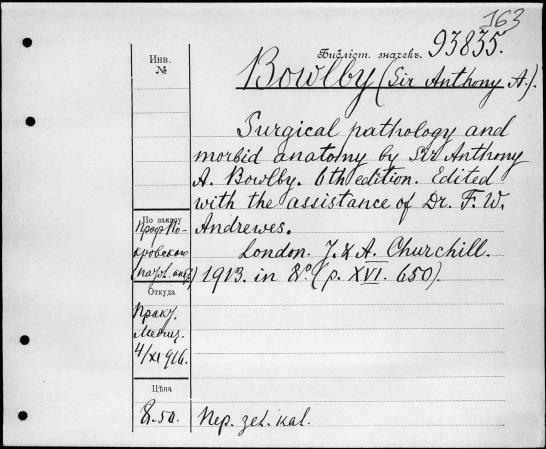 163
Инв.
№
Библіот. значекъ. 93835.
Bowlby (Sir Anthony A.).
Surgical pathology and
morbid anatomy by Sir Anthony
A. Bowlby. 6th edition. Edited
with the assistance of Dr. F. W.
Andrewes.
London. J. & A. Churchill.
1913. in 8º. (p. XVI. 650).
По заказу
Проф. По-
кровскаго
Откуда
Практ.
Медиц.
4/XI 916.
Цѣна
8.50.
Пер. zel. kal.